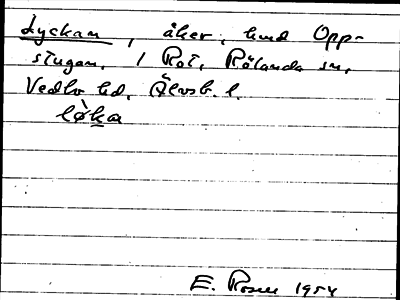 Lyckan, åker, hmd Opp-
stugan, 1 Rot, Rölanda sn,
Vedbo hd, Älvsb. l.
lø̀ka
E. Rosell 1954